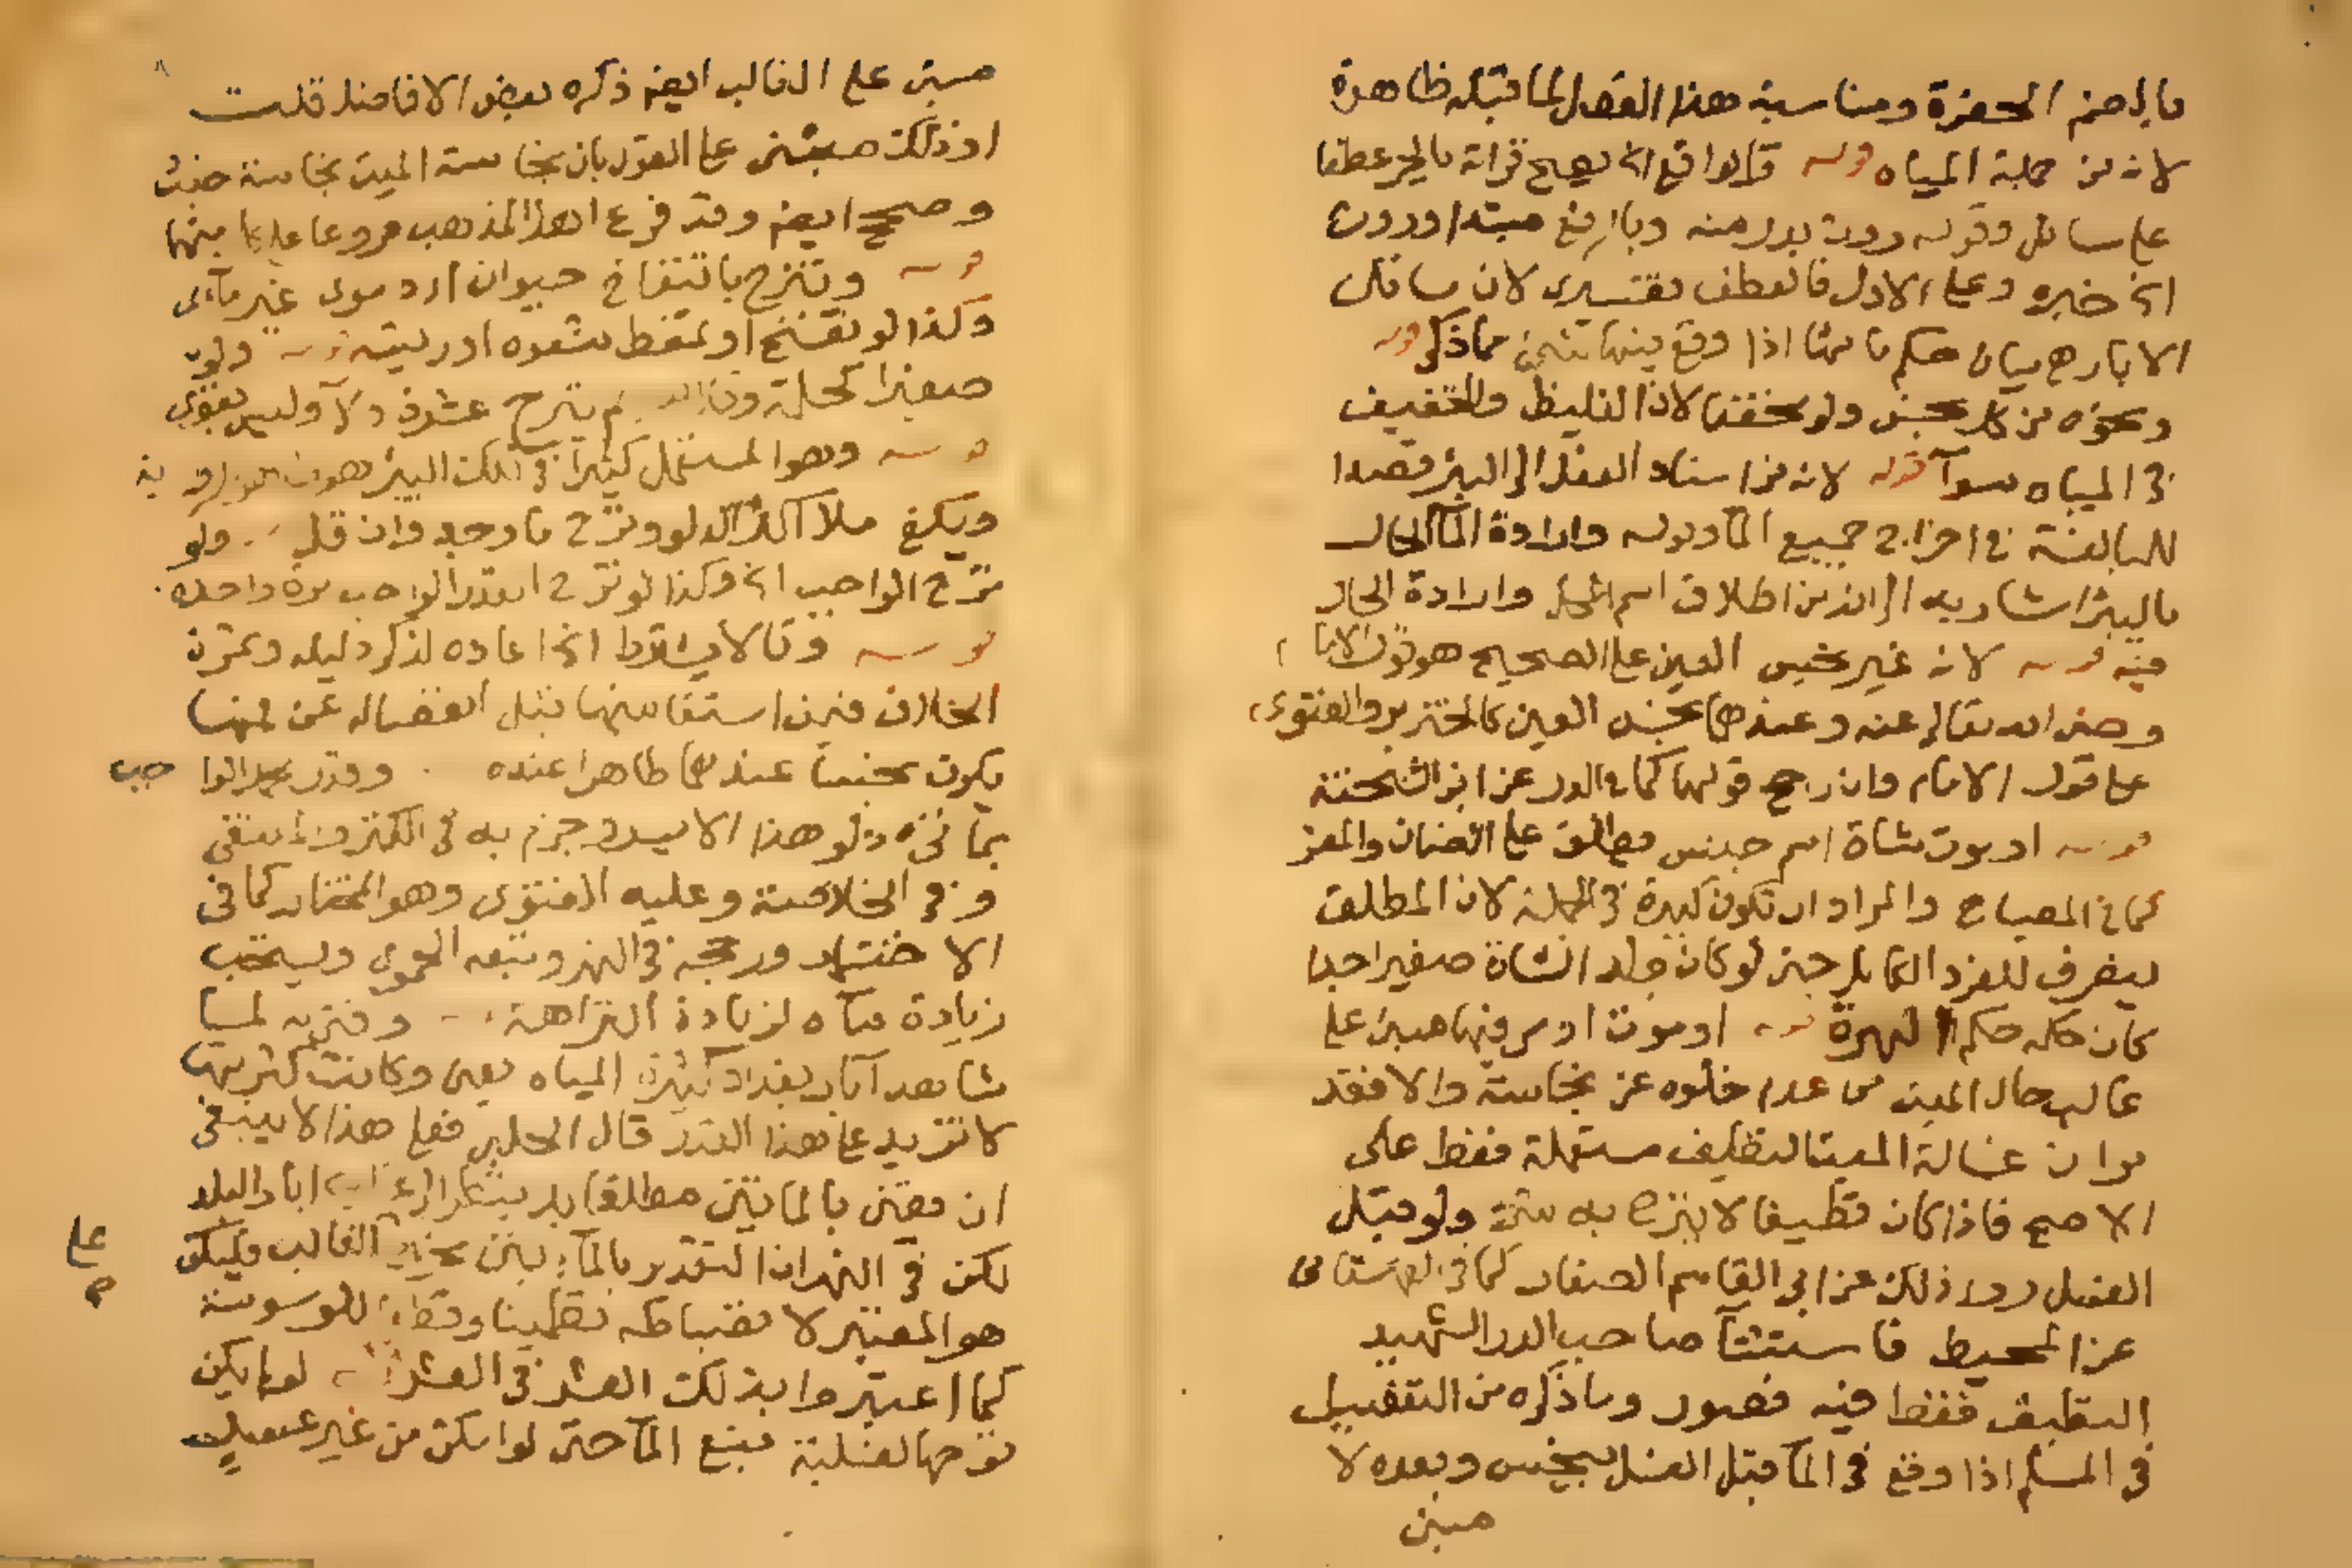 بالضم الحفرة ومناسبة هذا الفصل لما قبله ظاهرة
لانه من جملة المياه قوله والواقع الخ يصح قراته بالجر عطفا
على مسائل وقوله روث بدل منه وبالرفع مبتدا وروث
الخ خبره وعلى الاول فالعطف تفسيري لان مسائل
الابار هي بيان حكم مائها اذا وقع فيها شئ مما ذكر قوله
ونحوه من كل نجس ولو مخففا لان التغليظ والتخفيف
في المياه سوآ قوله لانه من اسناد الفعل الى البئر قصدا
للمبالغة في اخراج جميع المآ وقوله وارادة المآ الحال
بالبئر اشار به الى انه من اطلاق اسم المحل وارادة الحال
فيه قوله لانه غير نجس العين على الصحيح هو قول الامام
رضى الله تعالى عنه وعندهما نجس العين كالخنزير والفتوى
على قول الامام وان رجح قولهما كما في الدر عن ابن الشحنة
قوله او موت شاة اسم جنس يطلق على الضان والمعز
كما في المصباح والمراد ان تكون كبيرة في الجملة لان المطلق
ينصرف للفرد الكامل حتى لو كان ولد الشاة صغيرا جدا
كان حكمه حكم الهرة قوله او موت ادمى فيها مبنى على
غالب حال الميت من عدم خلوه عن نجاسة والا فقد
مر ان غسالة الميت النظيف مستعملة فقط على
الاصح فاذا كان نظيفا لا ينزح به شئ ولو قبل
الغسل روى ذلك عن ابى القاسم الصفار كما في القهستانى
عن المحيط فاستثنآ صاحب الدر الشهيد
النظيف فقط فيه قصور وما ذكره من التفصيل
في المسلم اذا وقع في المآ قبل الغسل ينجس وبعده لا
مبنى
مبنى على الغالب ايضا ذكره بعض الافاضل قلت
او ذلك مبنى على القول بان نجاسة الميت نجاسة خبث
وصحح ايضا وقد فرع اهل المذهب فروعا عليهما فيها
قوله وتنزح بانتفاخ حيوان اى دموى غير مآئى
وكذا لو تفسخ او تمعط شعره او ريشه قوله ولو
صغيرا كحلمة لم ينزح عشرون دلآ وليس بقوى
قوله وهو المستعمل كثيرا في تلك البئر
ويكفى ملآ اكثر الدلو ونزح ما وجد وان قل قوله ولو
نزح الواجب الخ وكذا لو نزح القدر الواجب مرة واحدة
قوله وقالا يشترط الخ اعاده لذكر دليله وثمرة
الخلاف فيمن استقا منها قبل انفصاله عن فمها
يكون نجسا عندهما طاهرا عنده وقدر محمد الواجب
بمائتى دلو هذا الايسر وجزم به في الكنز والملتقى
وفي الخلاصة وعليه الفتوى وهو المختار كما في
الاختيار ورجحه في النهر وتبعه الحموى ويستحب
زيادة مآه لزيادة النزاهة وافتى به لما
شاهد آبار بغداد كثيرة المياه يعنى وكانت كثرتها
لا تزيد على هذا القدر قال الحلبى فعلى هذا لا ينبغى
ان يفتى بالمائتين مطلقا بل ينظر الى غالب ابار البلد
لكن في النهر ان التقدير بالمآئتين نحو الغالب فليكن
هو المعتبر لانضباطه تطمينا وقطعا للوسوسة
كما اعتبروا بذلك العشر في العشر قوله لو لم يكن
نزحها لغلبة منبع المآ حتى لو امكن من غير عسر
على